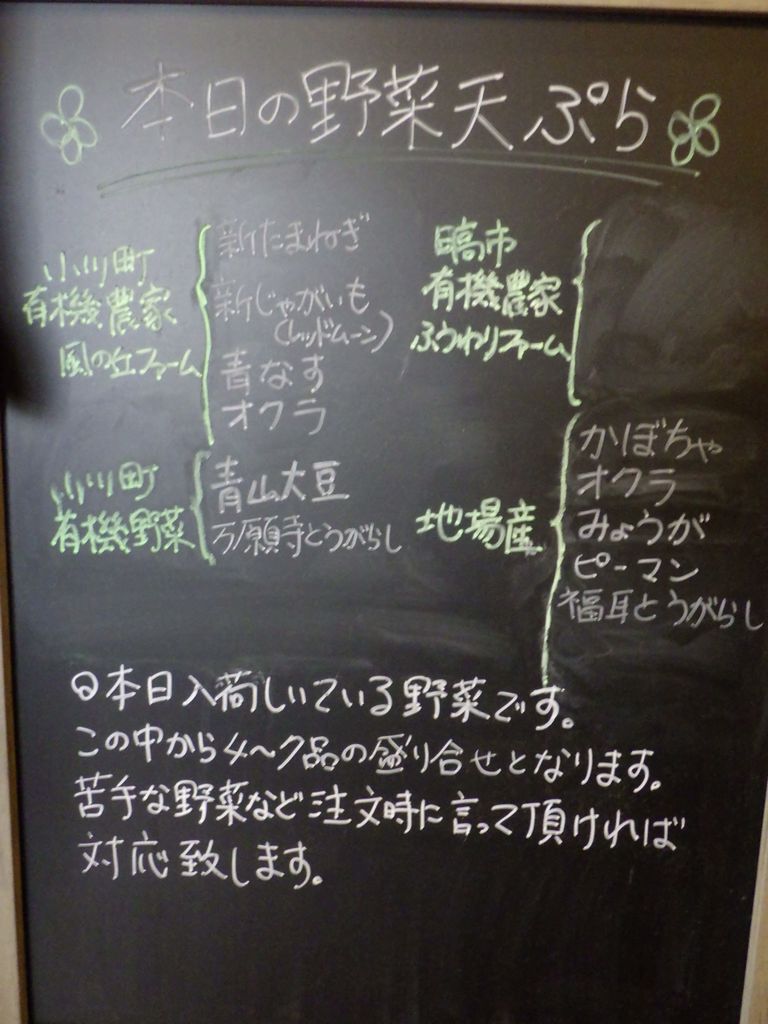 本日の野菜天ぷら
小川町
有機農家
風の丘ファーム
新たまねぎ
新じゃがいも
(レッドムーン)
青なす
オクラ
小川町
有機野菜
青山大豆
万願寺とうがらし
日高市
有機農家
ふうわりファーム
地場産
かぼちゃ
オクラ
みょうが
ピーマン
福耳とうがらし
◎本日入荷している野菜です。
この中から4〜7品の盛り合せとなります。
苦手な野菜など注文時に言って頂ければ
対応致します。